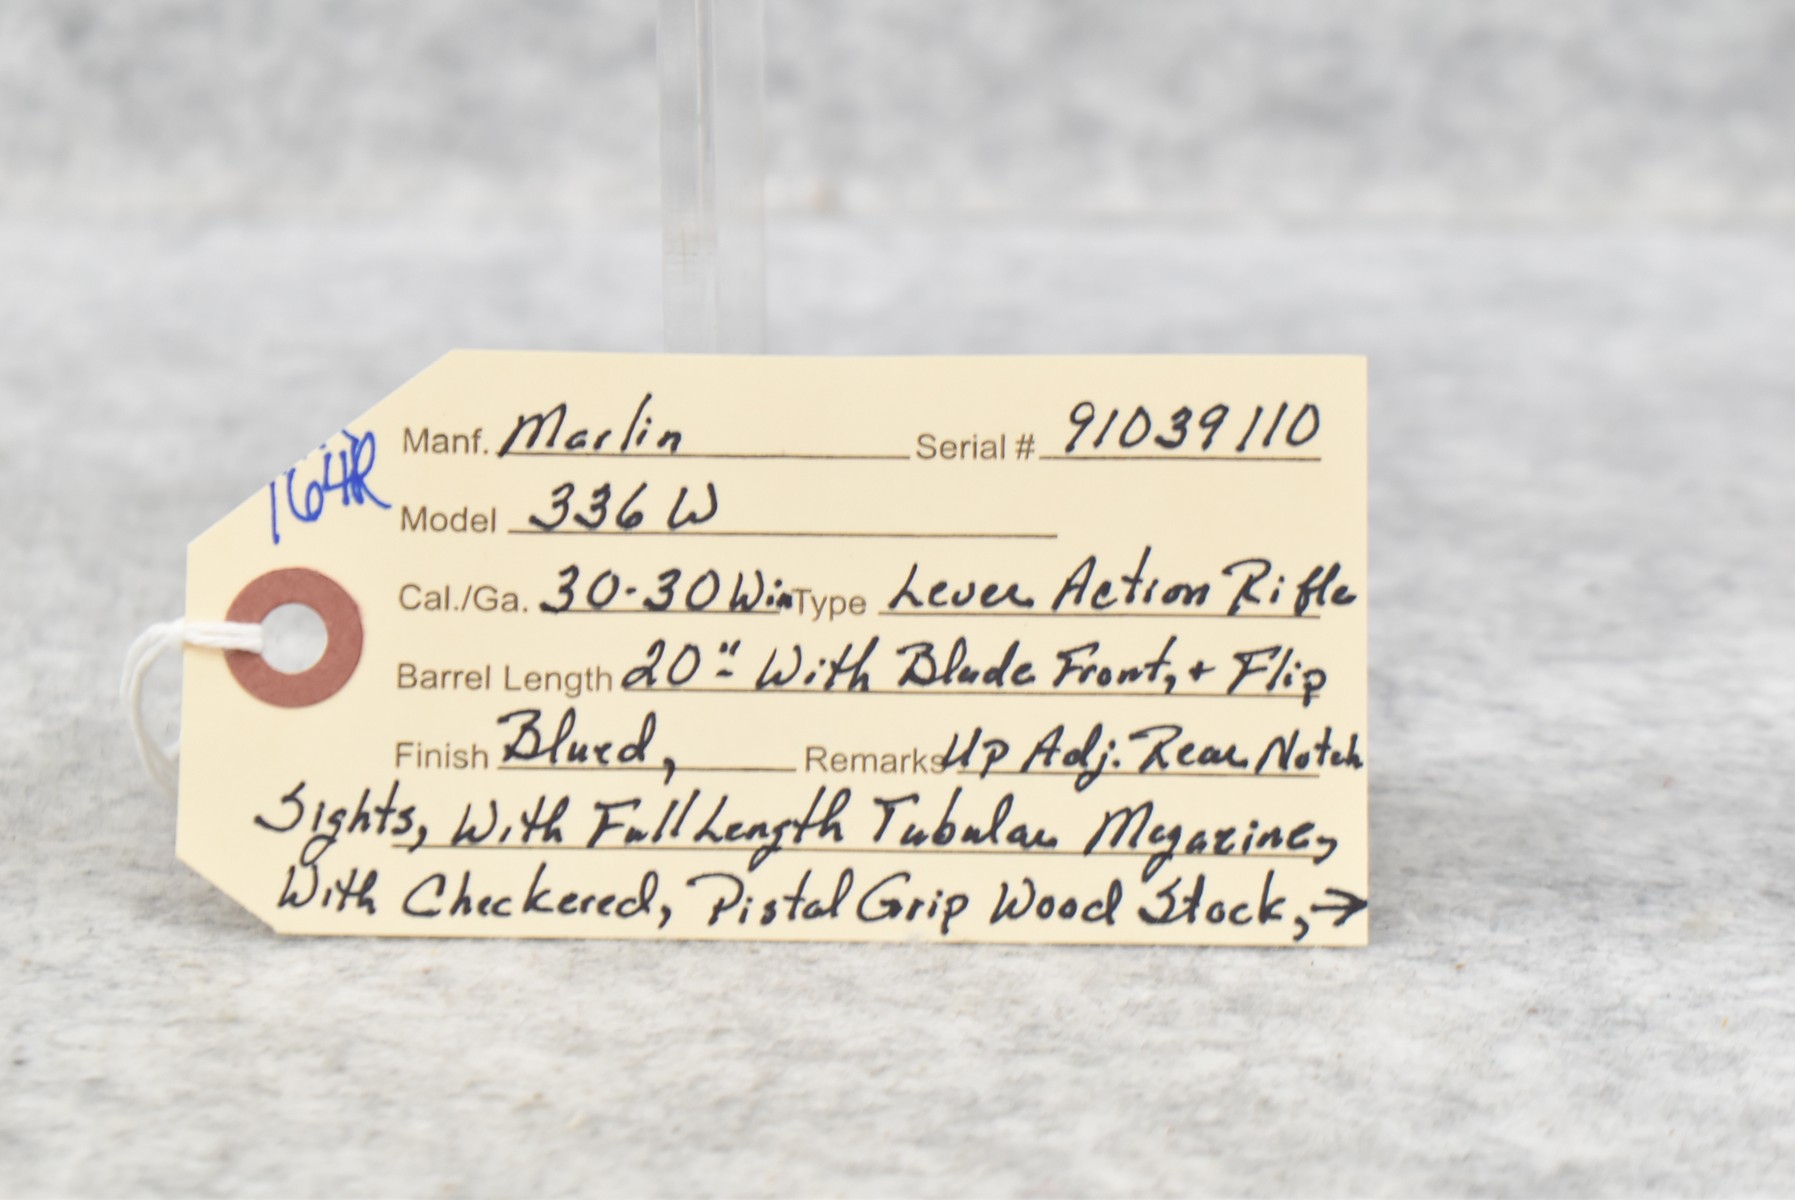 164R
Manf. Marlin Serial # 91039110
Model 336 W
Cal./Ga. 30-30 Win Type Lever Action Rifle
Barrel Length 20" With Blade Front, + Flip
Finish Blued, Remarks Up Adj. Rear Notch
Sights, With Full Length Tubular Magazine,
With Checkered, Pistal Grip Wood Stock, →